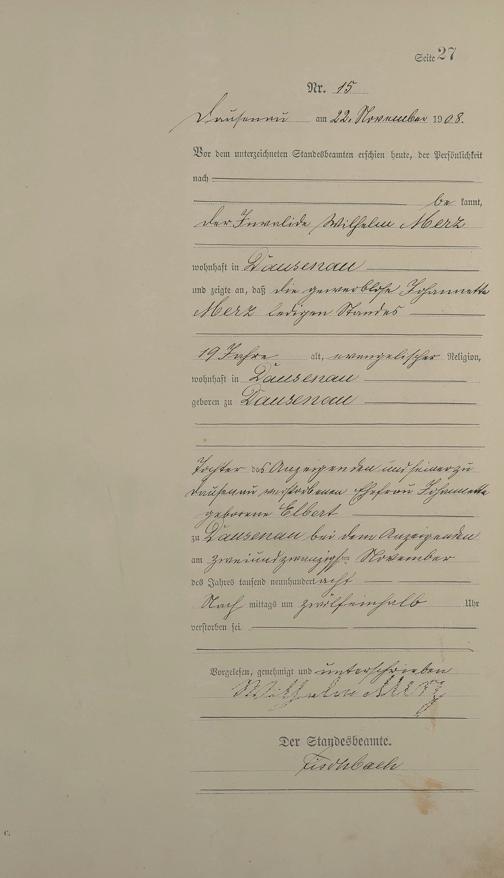 Seite 27
Nr. 15
Dausenau am 22. November 1908.
Vor dem unterzeichneten Standesbeamten erschien heute, der Persönlichkeit
nach
be kannt,
der Invalide Wilhelm Merz
wohnhaft in Dausenau
und zeigte an, daß die gewerblose Johannette
Merz ledigen Standes
19 Jahre alt, evangelischer Religion,
wohnhaft in Dausenau
geboren zu Dausenau
Tochter des Anzeigenden und seiner zu
Dausenau verstorbenen Ehefrau Johannette
geborene Elbert
zu Dausenau bei dem Anzeigenden
am zweiundzwanzigsten November
des Jahres tausend neunhundert acht
Nach mittags um zwölfeinhalb Uhr
verstorben sei.
Vorgelesen, genehmigt und unterschrieben
Wilhelm Merz
Der Standesbeamte.
Fischbach
C.